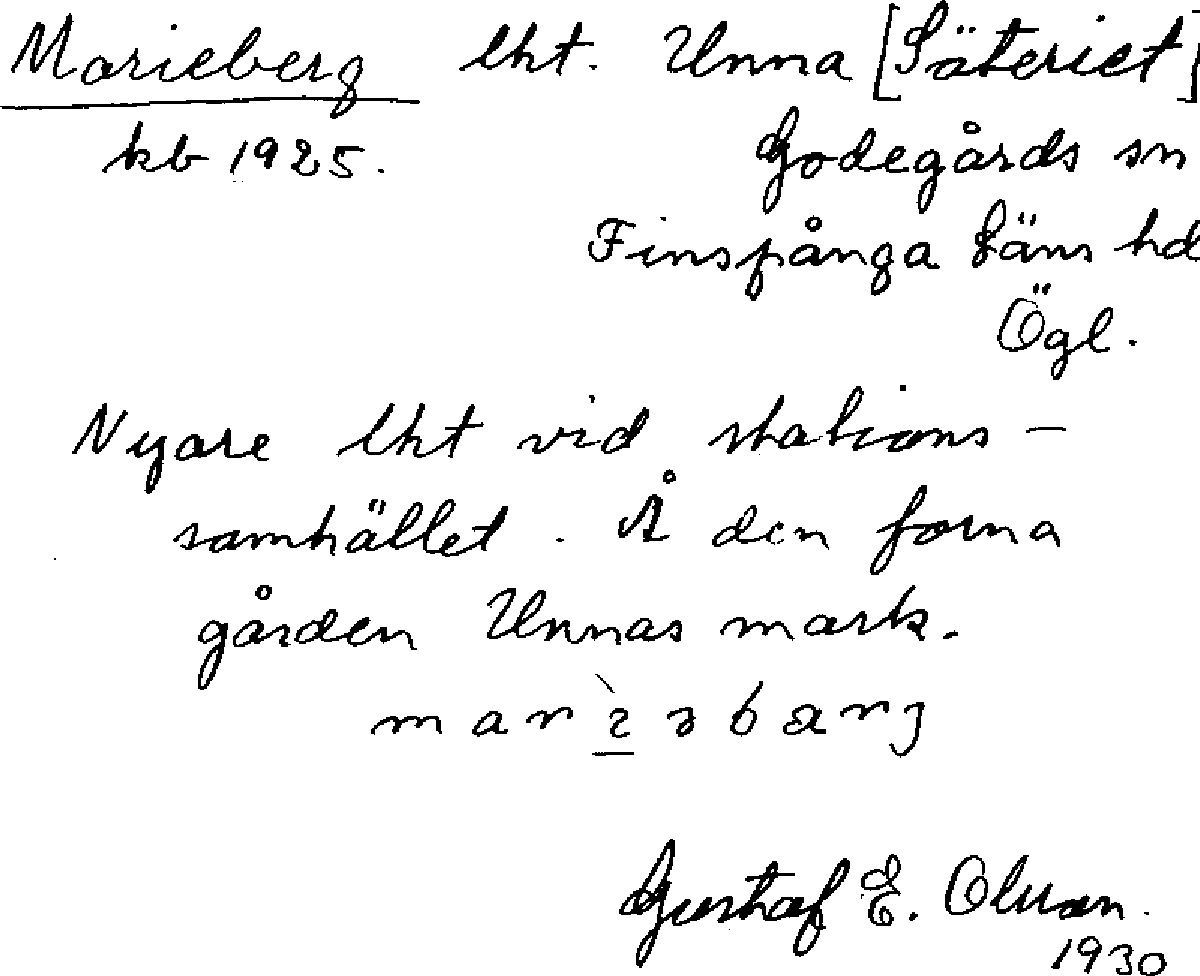 Marieberg lht. Unna [Säteriet]
kb 1925. Godegårds sn
Finspånga Läns hd
Ögl.
Nyare lht vid stations-
samhället. Å den forna
gården Unnas mark.
Gustaf E. Olsson.
1930